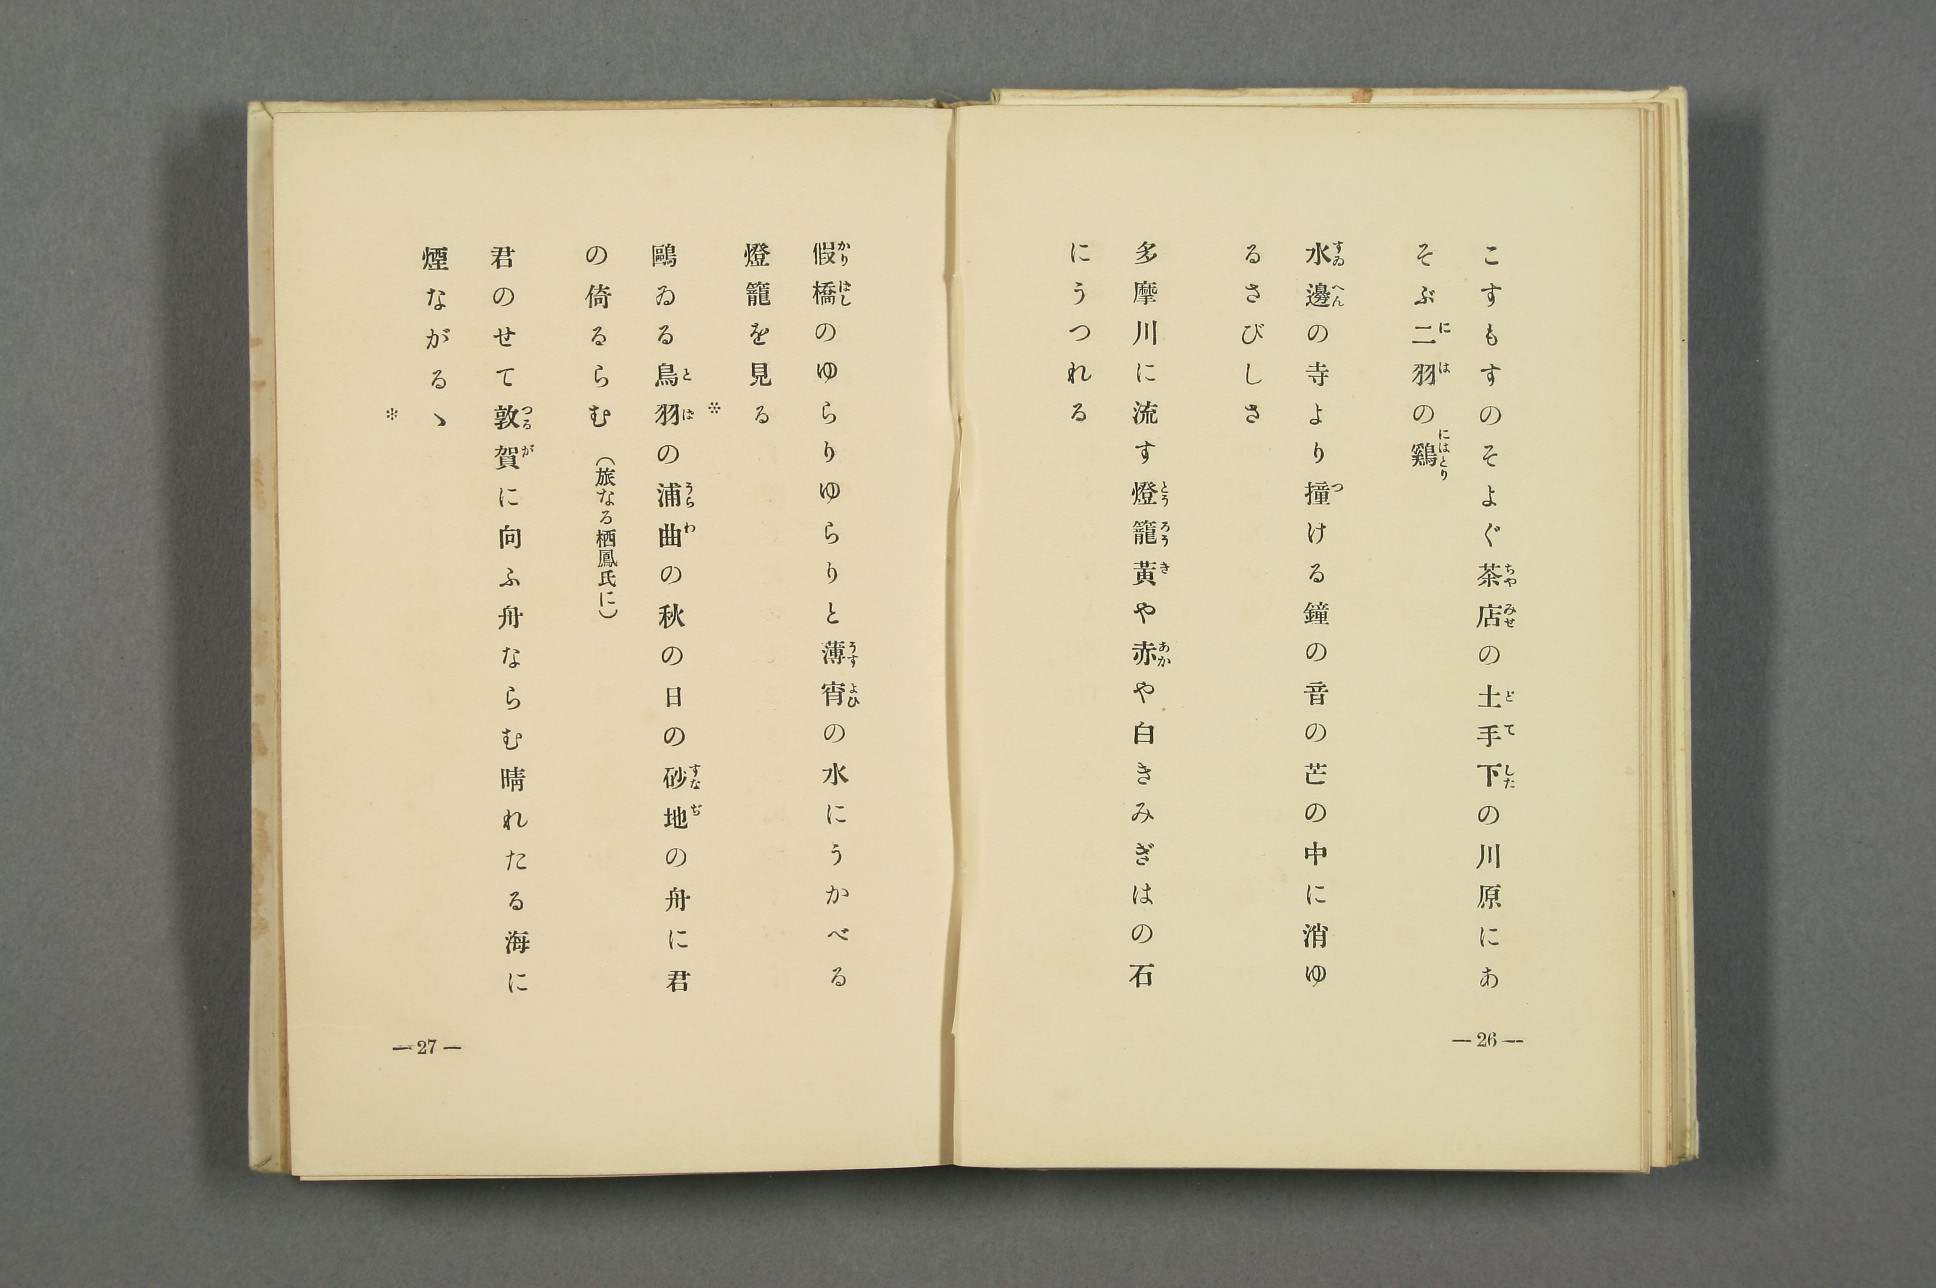 こすもすのそよぐ茶店の土手下の川原にあ
そぶ二羽の鷄
水邊の寺より撞ける鐘の音の芒の中に消ゆ
るさびしさ
多摩川に流す燈籠黄や赤や白きみぎはの石
にうつれる
— 26 —
假橋のゆらりゆらりと薄宵の水にうかべる
燈籠を見る
＊
鷗ゐる鳥羽の浦曲の秋の日の砂地の舟に君
の倚るらむ（旅なる栖鳳氏に）
君のせて敦賀に向ふ舟ならむ晴れたる海に
煙ながるゝ
＊
— 27 —